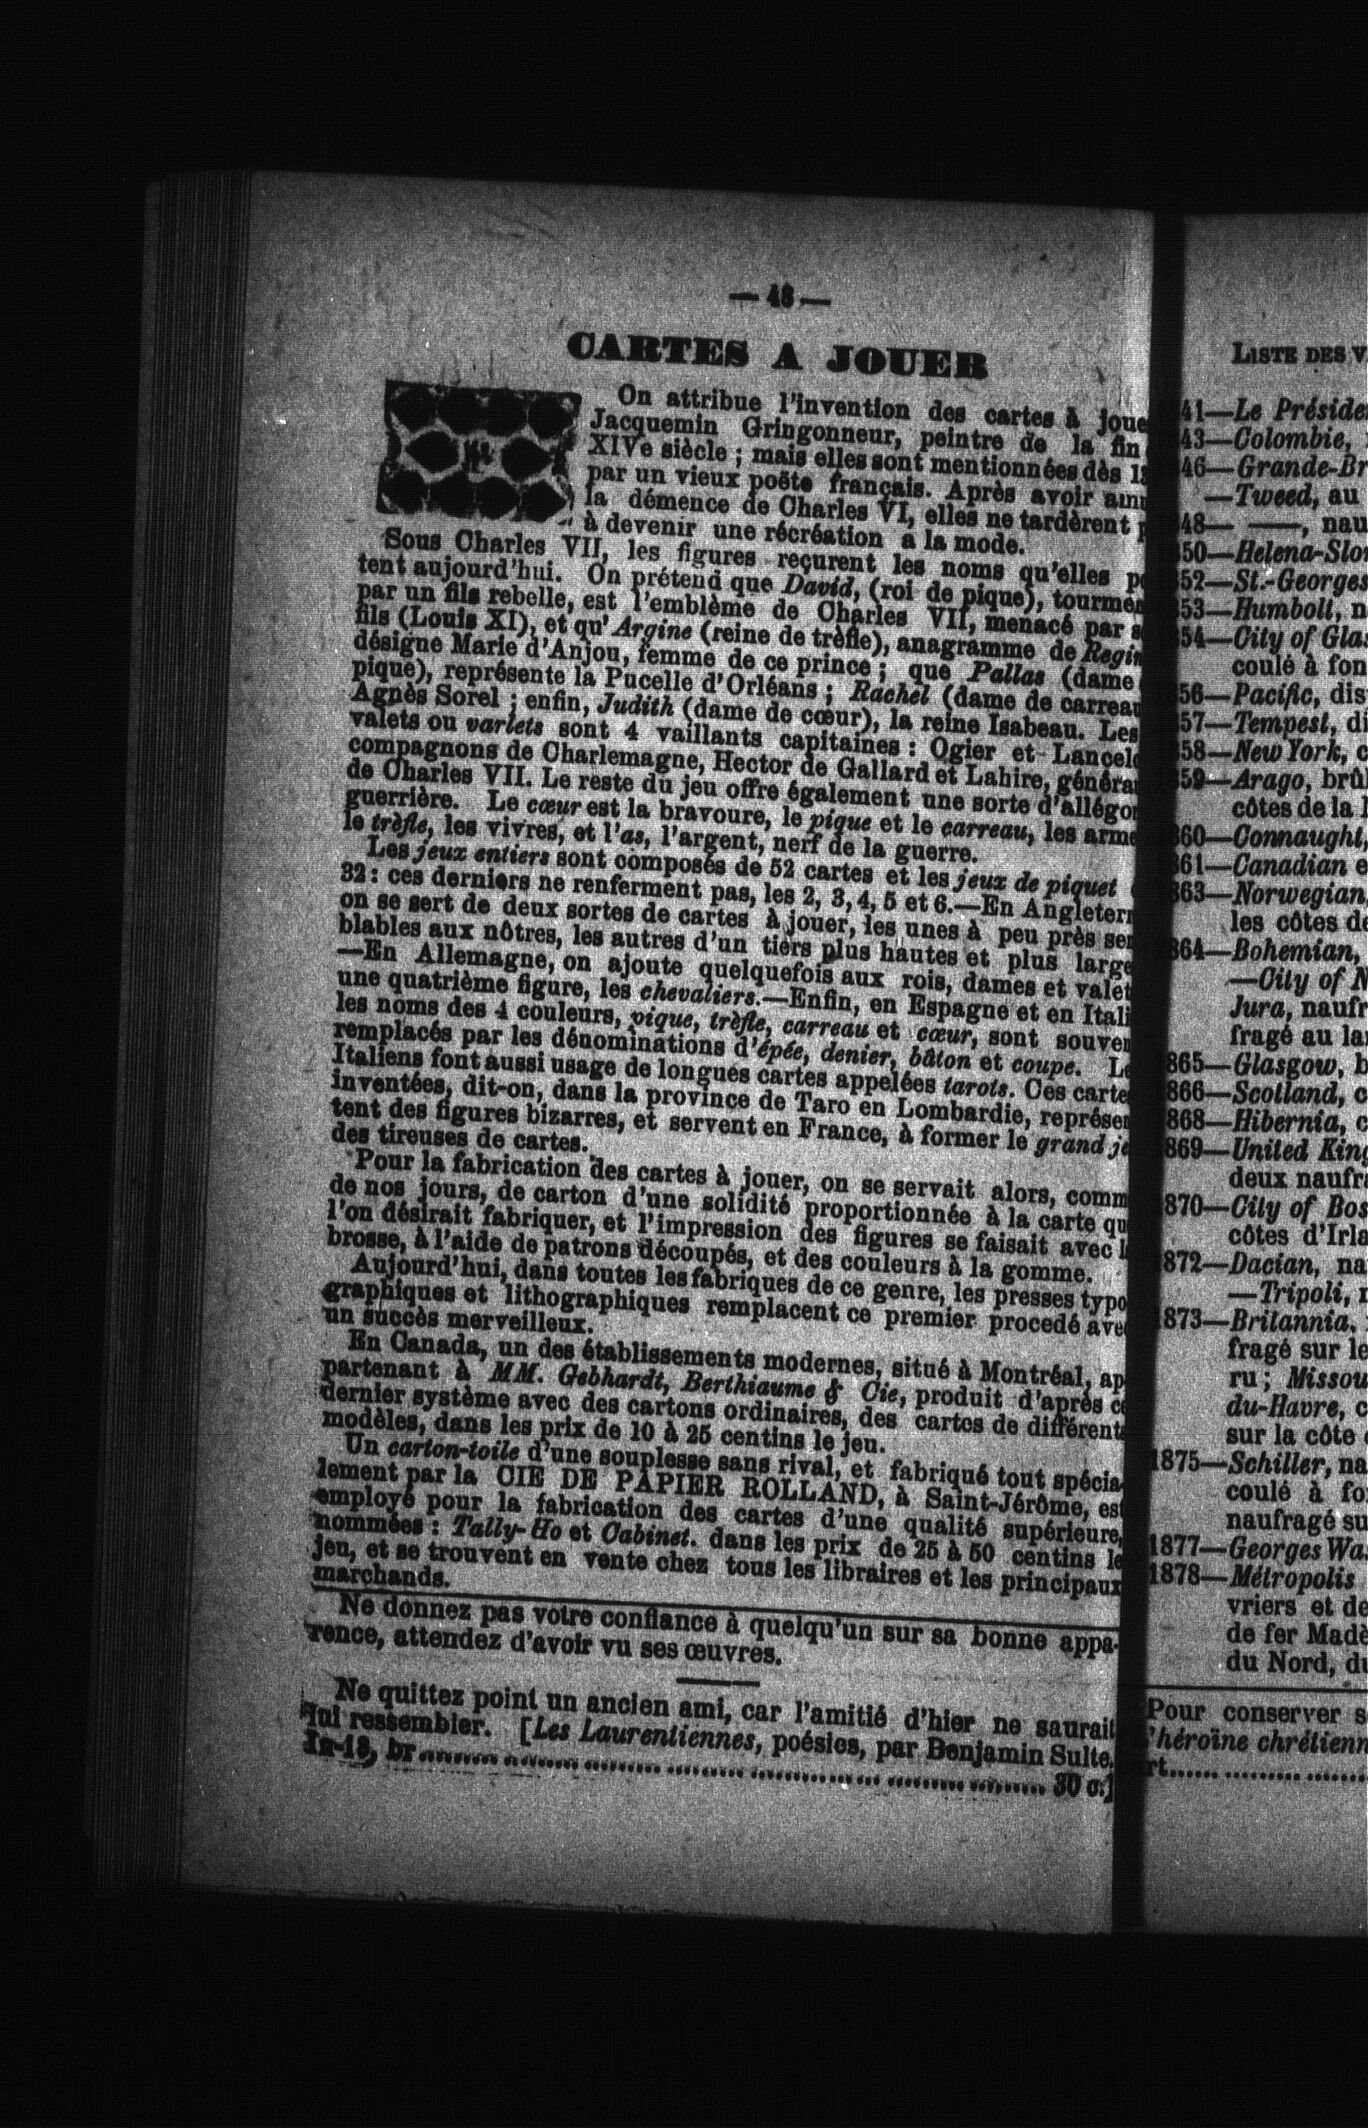 — 48 —
CARTES A JOUER
On attribue l'invention des cartes à joue
Jacquemin Gringonneur, peintre de la fin
XIVe siècle ; mais elles sont mentionnées dès 13
par un vieux poëte français. Après avoir amu
la démence de Charles VI, elles ne tardèrent p
à devenir une récréation a la mode.
Sous Charles VII, les figures reçurent les noms qu'elles po
tent aujourd'hui. On prétend que David, (roi de pique), tourmen
par un fils rebelle, est l'emblème de Charles VII, menacé par s
fils (Louis XI), et qu'Argine (reine de trèfle), anagramme de Regin
désigne Marie d'Anjou, femme de ce prince ; que Pallas (dame
pique), représente la Pucelle d'Orléans ; Rachel (dame de carreau
Agnès Sorel ; enfin, Judith (dame de cœur), la reine Isabeau. Les
valets ou varlets sont 4 vaillants capitaines : Ogier et Lancelo
compagnons de Charlemagne, Hector de Gallard et Lahire, généra
de Charles VII. Le reste du jeu offre également une sorte d'allégor
guerrière. Le cœur est la bravoure, le pique et le carreau, les arme
le trèfle, les vivres, et l'as, l'argent, nerf de la guerre.
Les jeux entiers sont composés de 52 cartes et les jeux de piquet
32 : ces derniers ne renferment pas, les 2, 3, 4, 5 et 6.—En Angleterr
on se sert de deux sortes de cartes à jouer, les unes à peu près sem
blables aux nôtres, les autres d'un tiers plus hautes et plus large
—En Allemagne, on ajoute quelquefois aux rois, dames et valet
une quatrième figure, les chevaliers.—Enfin, en Espagne et en Itali
les noms des 4 couleurs, pique, trèfle, carreau et cœur, sont souven
remplacés par les dénominations d'épée, denier, bâton et coupe. Le
Italiens font aussi usage de longues cartes appelées tarots. Ces carte
inventées, dit-on, dans la province de Taro en Lombardie, représen
tent des figures bizarres, et servent en France, à former le grand je
des tireuses de cartes.
Pour la fabrication des cartes à jouer, on se servait alors, comm
de nos jours, de carton d'une solidité proportionnée à la carte qu
l'on désirait fabriquer, et l'impression des figures se faisait avec l
brosse, à l'aide de patrons découpés, et des couleurs à la gomme.
Aujourd'hui, dans toutes les fabriques de ce genre, les presses typo
graphiques et lithographiques remplacent ce premier procedé avec
un succès merveilleux.
En Canada, un des établissements modernes, situé à Montréal, ap-
partenant à MM. Gebhardt, Berthiaume & Cie, produit d'après ce
dernier système avec des cartons ordinaires, des cartes de différents
modèles, dans les prix de 10 à 25 centins le jeu.
Un carton-toile d'une souplesse sans rival, et fabriqué tout spécia-
lement par la CIE DE PAPIER ROLLAND, à Saint-Jérôme, est
employé pour la fabrication des cartes d'une qualité supérieure,
nommées : Tally-Ho et Cabinet. dans les prix de 25 à 50 centins le
jeu, et se trouvent en vente chez tous les libraires et les principaux
marchands.
Ne donnez pas votre confiance à quelqu'un sur sa bonne appa-
rence, attendez d'avoir vu ses œuvres.
Ne quittez point un ancien ami, car l'amitié d'hier ne saurait
lui ressembler. [Les Laurentiennes, poésies, par Benjamin Sulte.
In-18, br.................... 30 c.]
LISTE DES V
41—Le Préside
43—Colombie,
46—Grande-Br
—Tweed, au
48— ——, nau
50—Helena-Slo
52—St.-Georges
53—Humbolt, n
54—City of Gla
coulé à fon
56—Pacific, dis
57—Tempest, di
58—New York, c
59—Arago, brûl
côtes de la
60—Connaught,
861—Canadian e
863—Norwegian,
les côtes de
864—Bohemian,
—City of N
Jura, naufr
fragé au la
865—Glasgow, b
866—Scotland, c
868—Hibernia, c
869—United King
deux naufra
870—City of Bos
côtes d'Irla
1872—Dacian, na
—Tripoli, n
1873—Britannia,
fragé sur le
ru ; Missou
du-Havre, c
sur la côte
1875—Schiller, na
coulé à fo
naufragé su
1877—Georges Was
1878—Métropolis
vriers et de
de fer Madè
du Nord, du
Pour conserver s
l'héroïne chrétienn
rt....................